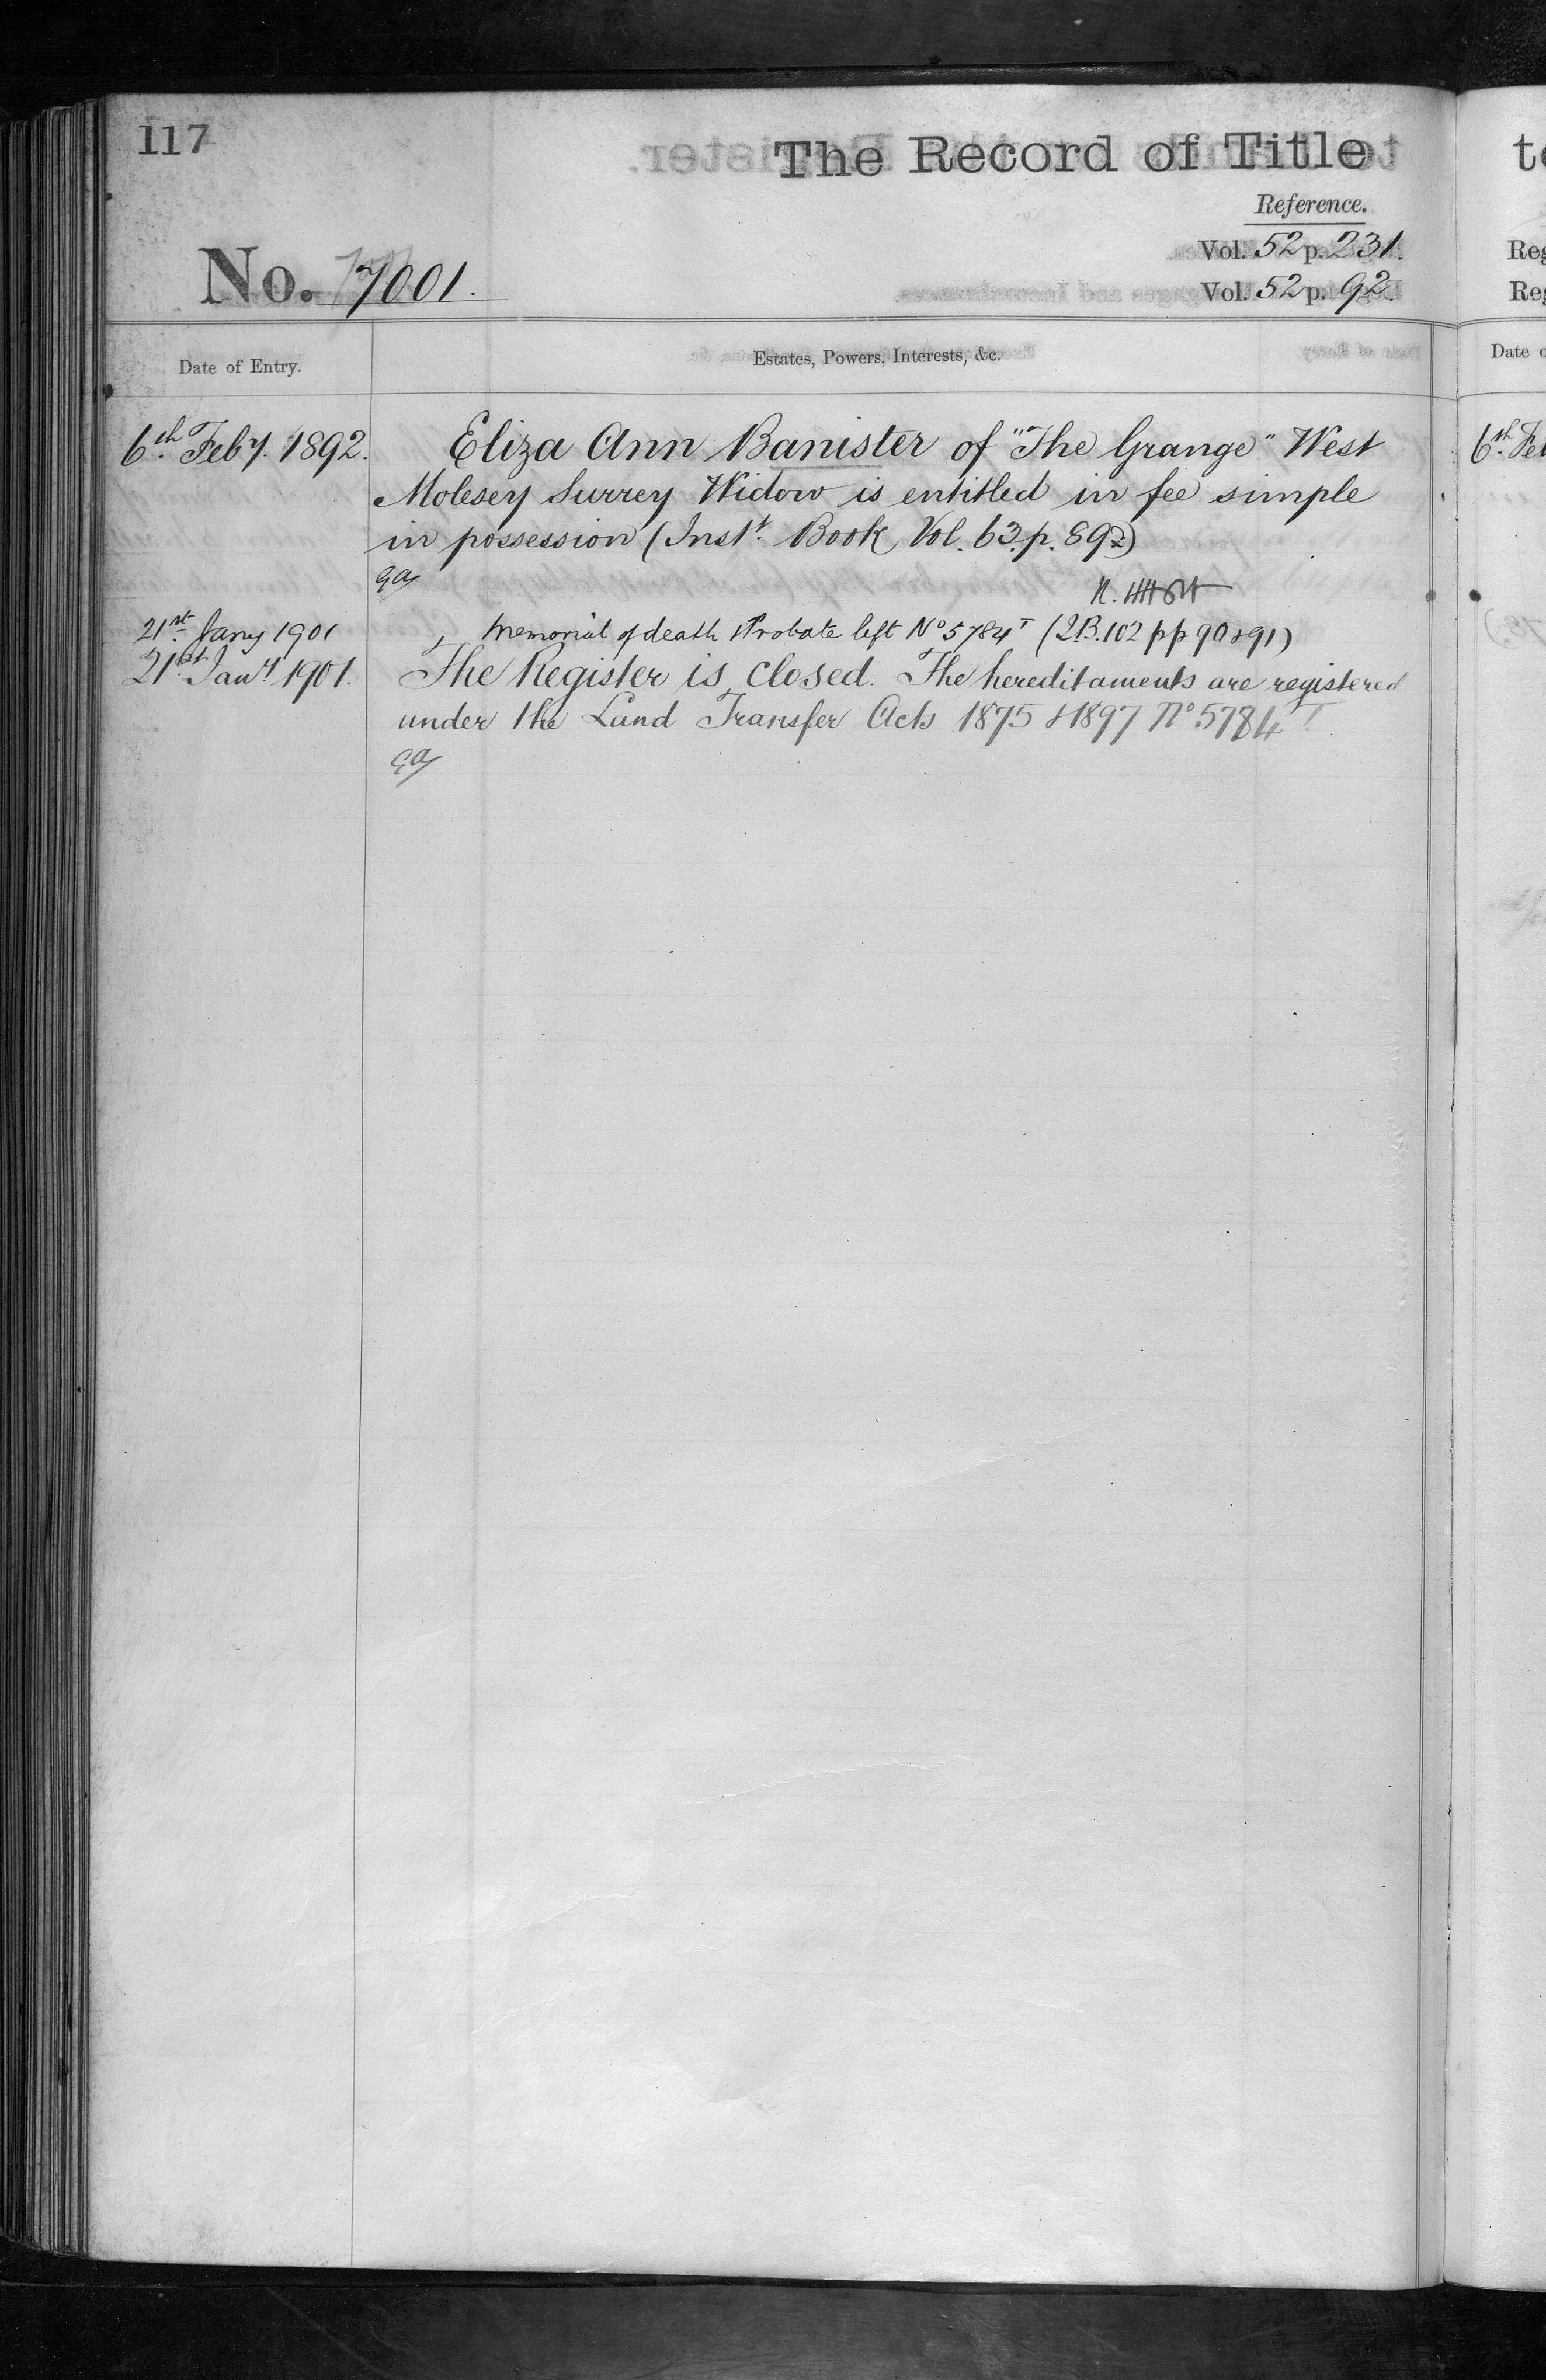 117
The Record of Title
Reference.
Vol. 52 p. 231.
No. 7001.
Vol. 52 p. 92.
Date of Entry.
Estates, Powers, Interests, &c.
6th Feby. 1892.
Eliza Ann Banister of "The Grange" West
Molesey Surrey Widow is entitled in fee simple
in possession (Inst. Book, Vol. 63. p. 89)
21st Jany 1901
Memorial of death & Probate left No 5784T (I.B. 102 pp 90 & 91)
21st Jany 1901.
The Register is closed. The hereditaments are registered
under the Land Transfer Acts 1875 & 1897 No 5784T
Date
6th Fe